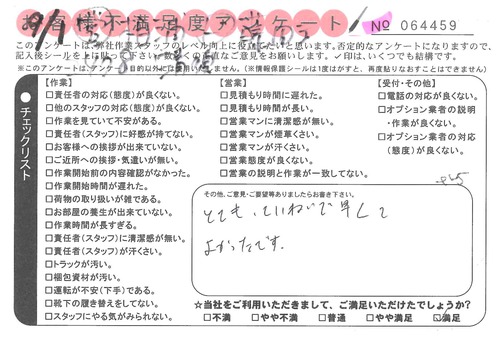 お客様不満足度アンケート
No 064459
このアンケートは、弊社作業スタッフのレベル向上に役立てたいと思います。否定的なアンケートになりますので、
記入後シールを上に貼って下さい。お客様の率直なご意見をお願いします。✓印は、いくつでも結構です。
※このアンケートは、アンケート目的以外には用いません。(※情報保護シールは1度はがすと、再度貼りなおすことはできません)
● チェックリスト
【作業】
□責任者の対応(態度)が良くない。
□他のスタッフの対応(態度)が良くない。
□作業を見ていて不安がある。
□責任者(スタッフ)に好感が持てない。
□お客様への挨拶が出来ていない。
□ご近所への挨拶・気遣いが無い。
□作業開始前の内容確認がなかった。
□作業開始時間が遅れた。
□荷物の取り扱いが雑である。
□お部屋の養生が出来ていない。
□作業時間が長すぎる。
□責任者(スタッフ)に清潔感が無い。
□責任者(スタッフ)が汗くさい。
□トラックが汚い。
□梱包資材が汚い。
□運転が不安(下手)である。
□靴下の履き替えをしてない。
□スタッフにやる気がみられない。
【営業】
□見積もり時間に遅れた。
□見積もり時間が長い。
□営業マンに清潔感が無い。
□営業マンが煙草くさい。
□営業マンが汗くさい。
□営業態度が良くない。
□営業の説明と作業が一致してない。
【受付・その他】
□電話の対応が良くない。
□オプション業者の説明
・作業が良くない。
□オプション業者の対応
(態度)が良くない。
その他、ご意見・ご要望等ありましたらお書き下さい。
とても、ていねいで早くて
よかったです。
☆当社をご利用いただきまして、ご満足いただけたでしょうか?
□不満 □やや不満 □普通 □やや満足 ☑満足